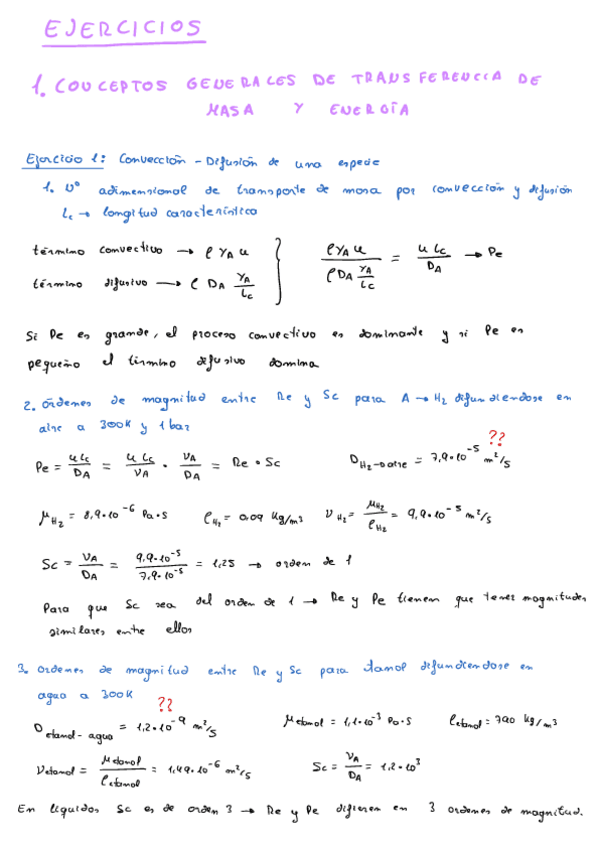 EJERCICIOS
1. CONCEPTOS GENERALES DE TRANSFERENCIA DE
MASA Y ENERGÍA
Ejercicio 1: Convección - Difusión de una especie
1. Nº adimensional de transporte de masa por convección y difusión
Lc → longitud característica
término convectivo → ρ YA u
término difusivo → ρ DA YA/Lc
ρ YA u / (ρ DA YA/Lc) = u Lc / DA → Pe
Si Pe es grande, el proceso convectivo es dominante y si Pe es
pequeño el término difusivo domina
2. Órdenes de magnitud entre Re y Sc para A → H2 difundiendose en
aire a 300K y 1 bar
??
Pe = u Lc / DA = u Lc / νA · νA / DA = Re · Sc
D H2→aire = 7,9·10^-5 m²/s
μH2 = 8,9·10^-6 Pa·s ρH2 = 0,09 Kg/m³ νH2 = μH2 / ρH2 = 9,9·10^-5 m²/s
Sc = νA / DA = 9,9·10^-5 / 7,9·10^-5 = 1,25 → orden de 1
Para que Sc sea del orden de 1 → Re y Pe tienen que tener magnitudes
similares entre ellos
3. Ordenes de magnitud entre Re y Sc para etanol difundiendose en
agua a 300K
??
D etanol-agua = 1,2·10^-9 m²/s μetanol = 1,1·10^-3 Pa·s ρetanol = 790 kg/m³
νetanol = μetanol / ρetanol = 1,49·10^-6 m²/s Sc = νA / DA = 1,2·10³
En líquidos Sc es de orden 3 → Re y Pe difieren en 3 ordenes de magnitud.